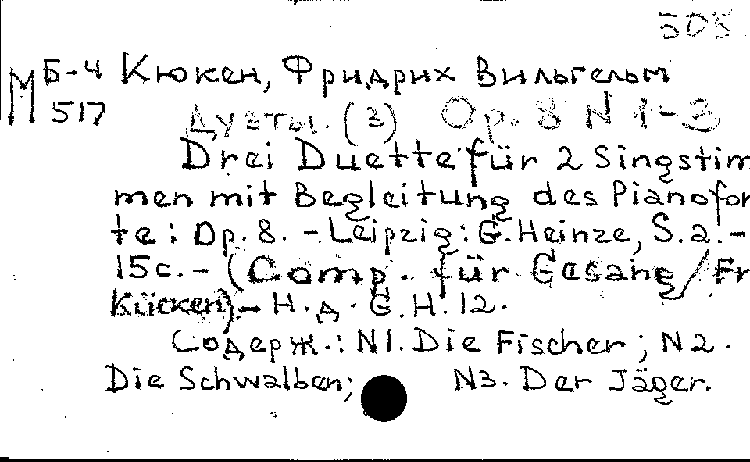 508
М Б-4 Кюкен, Фридрих Вильгельм
517 Дуэты. (3) Op. 8 N 1-3
Drei Duette für 2 Singstim
men mit Begleitung des Pianofor
te: Op. 8. - Leipzig: G. Heinze, S.a. -
15c. - (Comp. für Gesang / Fr
Kücken). - Н.д. G.H. 12.
Содерж.: N1. Die Fischer; N2.
Die Schwalben; N3. Der Jäger.